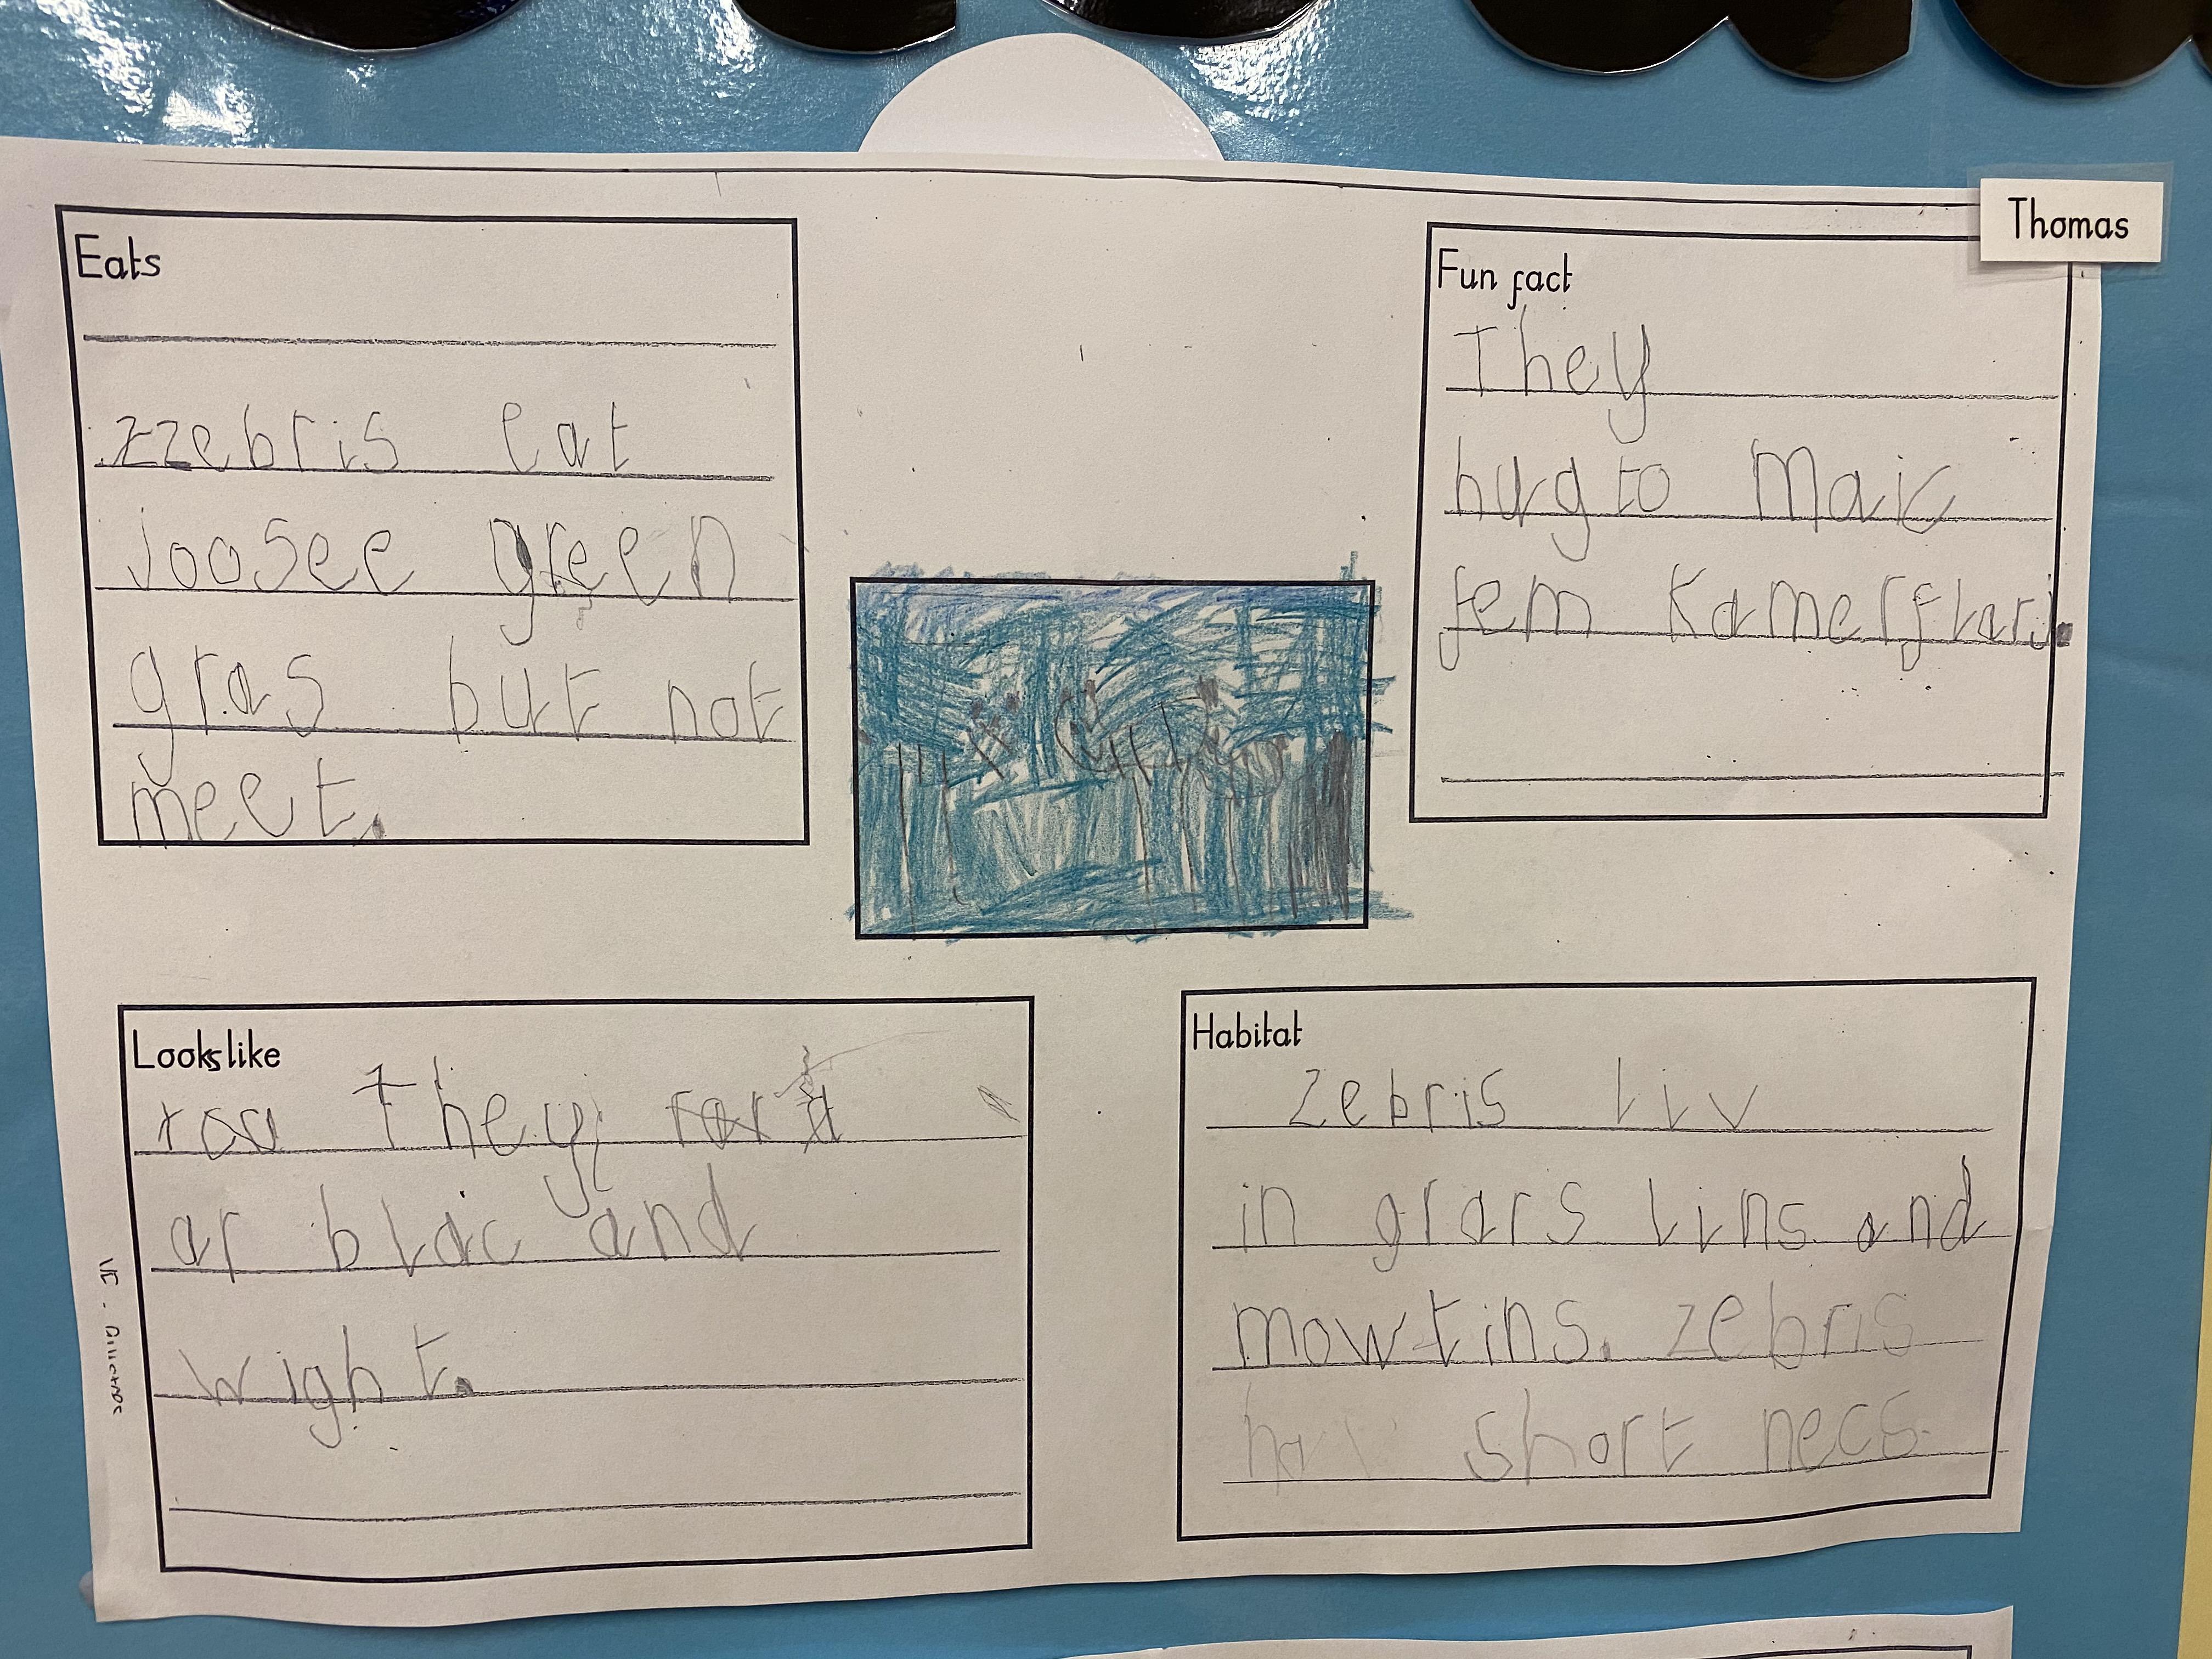 Thomas
Eats
zzebris eat
joosee green
gras but not
meet.
Fun fact
They
hug to maic
fem kamerflarj.
Looks like
They
ar blac and
wight.
Habitat
zebris liv
in grars lins and
mowtins. zebris
short necs